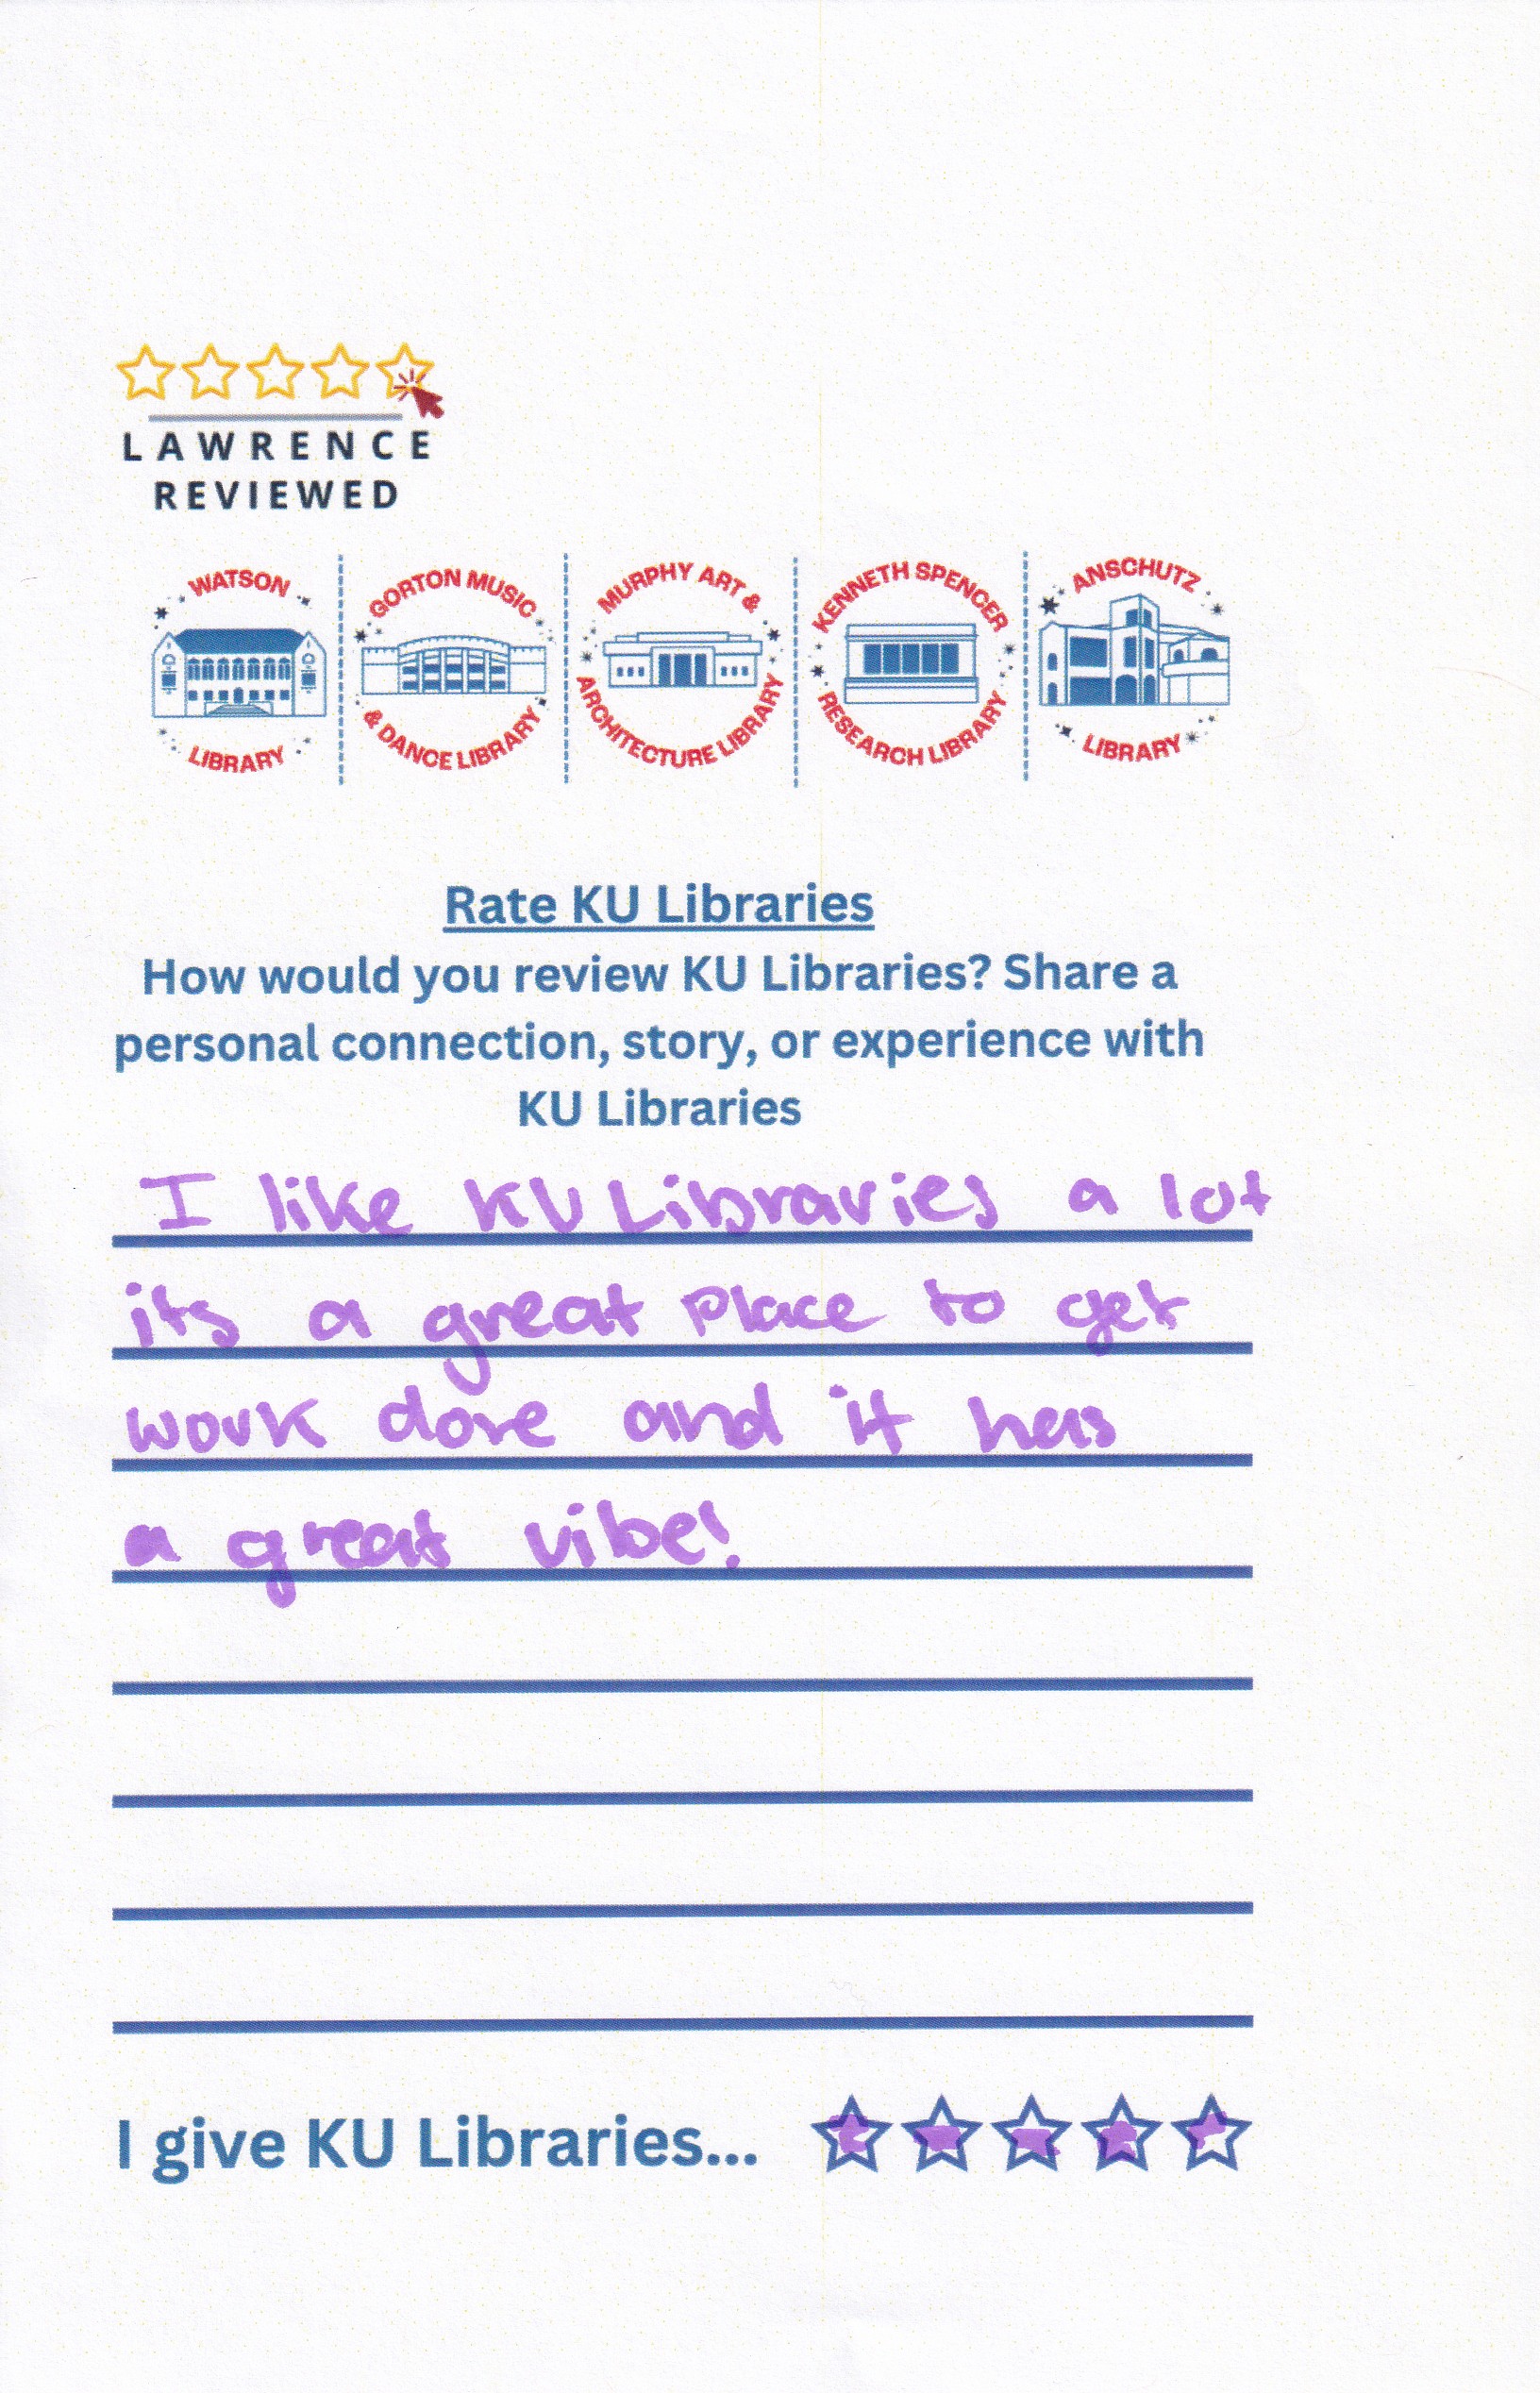 LAWRENCE
REVIEWED
WATSON LIBRARY
GORTON MUSIC & DANCE LIBRARY
MURPHY ART & ARCHITECTURE LIBRARY
KENNETH SPENCER RESEARCH LIBRARY
ANSCHUTZ LIBRARY
Rate KU Libraries
How would you review KU Libraries? Share a
personal connection, story, or experience with
KU Libraries
I like KU Libraries a lot
its a great place to get
work done and it has
a great vibe!
I give KU Libraries...